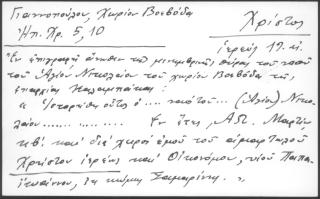 Γιαννοπούλου, Χωρίον Βοεβόδα
Χρίστος
Ἠπ. Χρ. 5, 10
ἱερεύς 19. αἰ.
Ἐν ἐπιγραφῇ ἄνωθεν τῆς μεσημβρινῆς θύρας τοῦ ναοῦ
τοῦ Ἁγίου Νικολάου τοῦ χωρίου Βοεβόδα τῆς
ἐπαρχίας Καλαμπάκας:
« Ἱστορήθη οὗτος ὁ .... ναός τοῦ... (Ἁγίου) Νικο-
λάου .... .... .... Ἐν ἔτει, ΑΩ. Μαρτίου
κβ' καί διά χειρός ἐμοῦ τοῦ ἁμαρτωλοῦ
Χρήστου ἱερέως καί Οἰκονόμου, υἱοῦ Παπα-
ϊωάννου, ἐκ κώμης Σαμαρίνης. »